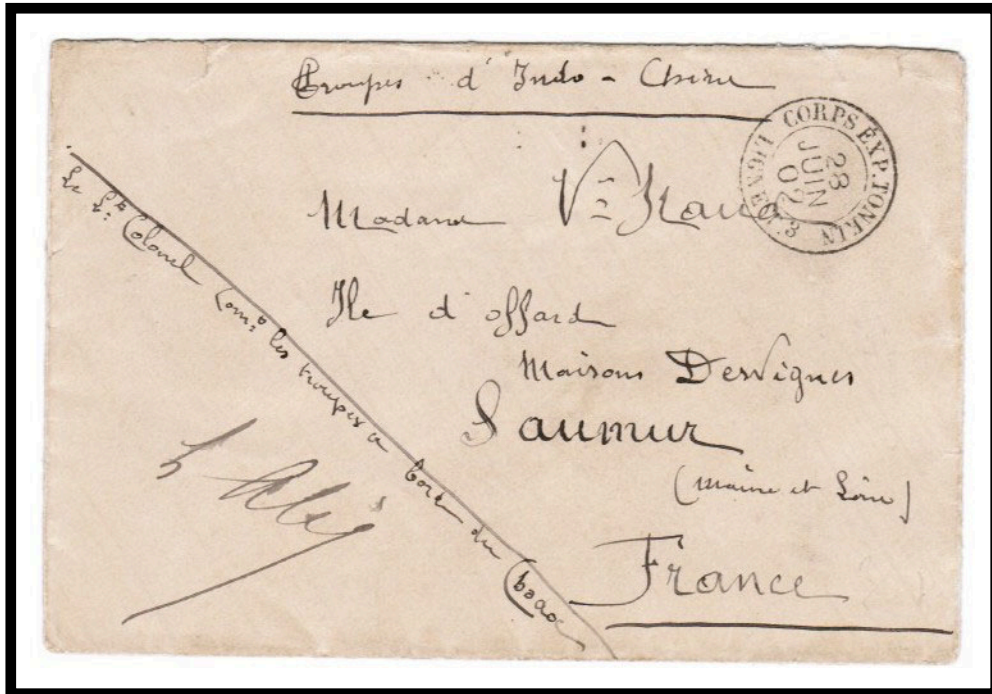 Troupes d'Indo-Chine
CORPS EXP. TONKIN
LIGNE N
28
JUIN
02
Madame Vve
Ile d'offard
Maisons DesVignes
Saumur
(Maine et Loire)
France
Le Lt Colonel Comdt les troupes a bord du